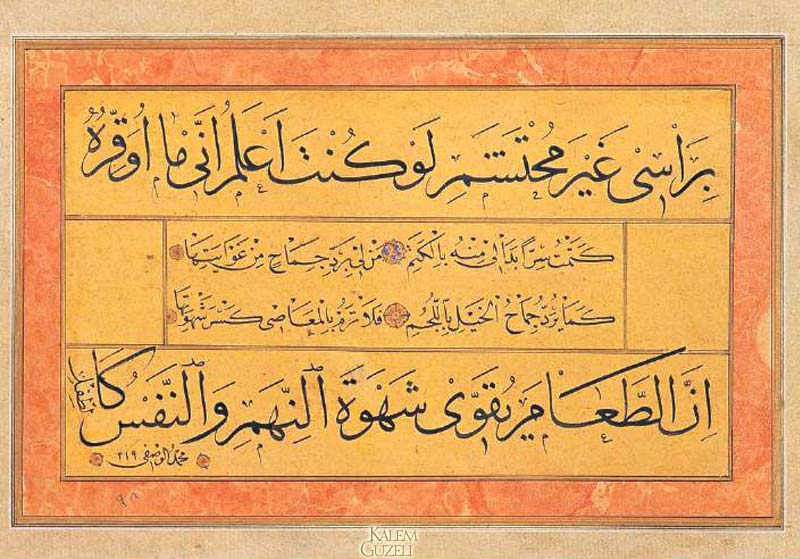 بِرَأْسِى غَيْرَ مُحْتَشِمِ لَوْ كُنْتُ اَعْلَمُ اَنِّى مَا اُوَقِّرُهُ
كَتَمْتُ سِرًّا بَدَا لِى مِنْهُ بِالْكَتَمِ مَنْ لِى بِرَدِّ جِمَاحٍ مِنْ غَوَايَتِهَا
كَمَا يُرَدُّ جِمَاحُ الْخَيْلِ بِاللُّجُمِ فَلَا تَرُمْ بِالْمَعَاصِى كَسْرَ شَهْوَتِهَا
اِنَّ الطَّعَامَ يُقَوِّى شَهْوَةَ النَّهِمِ وَالنَّفْسُ كَالطِّفْلِ
محمد الوصفى ٢١٩
KALEM GÜZELİ